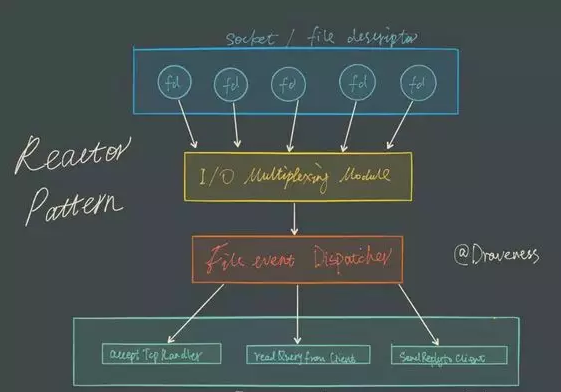 socket / file descriptor
fd fd fd fd fd
Reactor
Pattern
I/O Multiplexing Module
File event Dispatcher
@Draveness
acceptTcpHandler
readQueryFromClient
sendReplyToClient